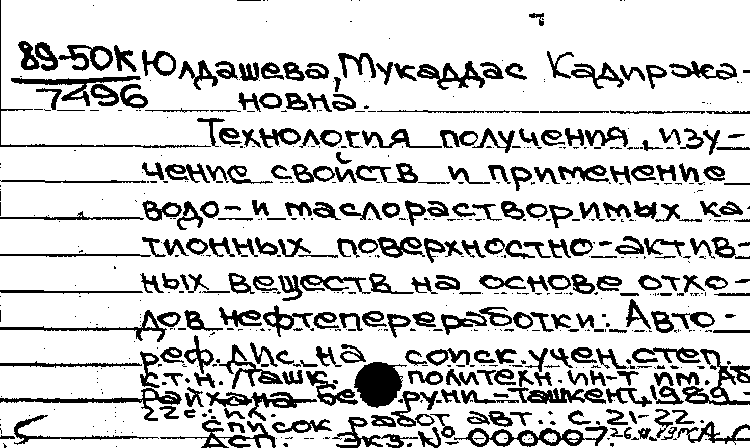 89-50К Юлдашева, Мукаддас Кадиржа-
7496 новна.
Технология получения, изу-
чение свойств и применение
водо- и маслорастворимых ка-
тионных поверхностно-актив-
ных веществ на основе отхо-
дов нефтепереработки: Авто-
реф. дис. на соиск. учен. степ.
к.т.н. / Ташк. политехн. ин-т им. Аб
Райхана Беруни - Ташкент, 1989
22 с.: ил.
Список работ авт.: с. 21-22
ДСП. Экз. № 000007.